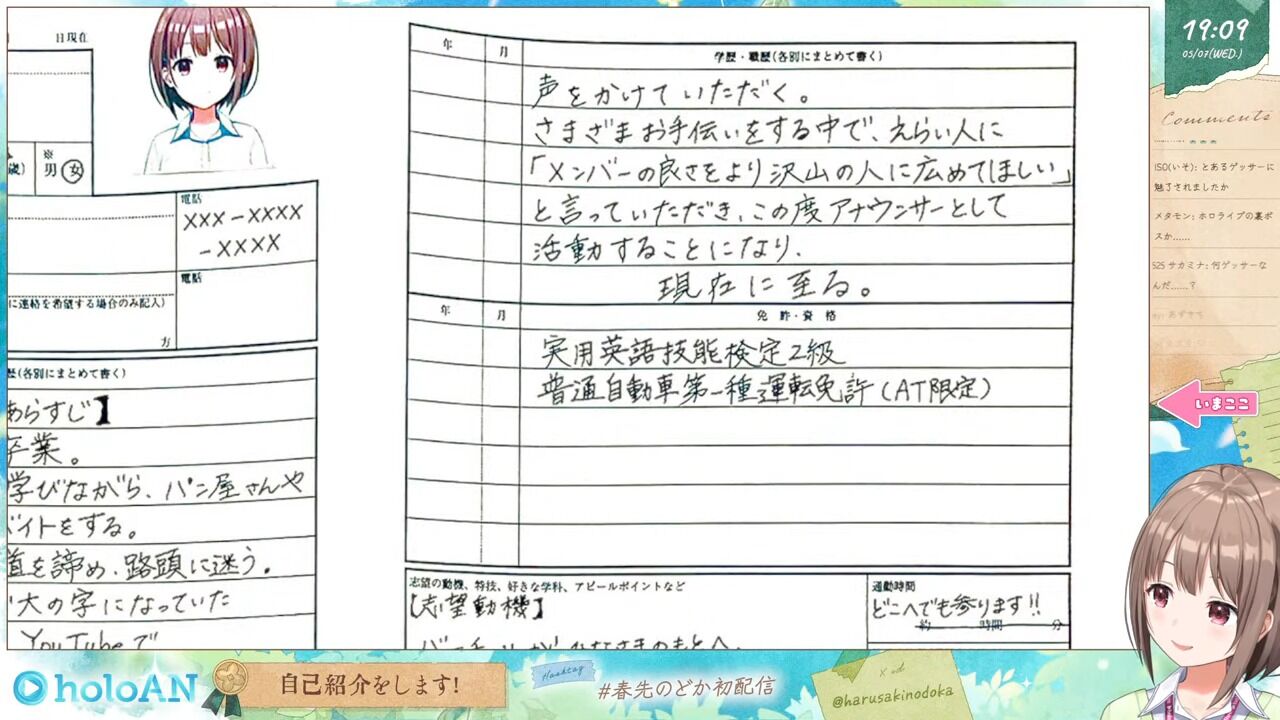 日現在
歳)
※
男 女
電話
XXX-XXXX
-XXXX
電話
に連絡を希望する場合のみ記入)
方
歴(各別にまとめて書く)
あらすじ】
卒業。
学びながら、パン屋さんや
バイトをする。
道を諦め、路頭に迷う。
大の字になっていた
YouTubeで
年 月 学歴・職歴(各別にまとめて書く)
声をかけていただく。
さまざまお手伝いをする中で、えらい人に
「メンバーの良さをより沢山の人に広めてほしい」
と言っていただき、この度アナウンサーとして
活動することになり、
現在に至る。
年 月 免許・資格
実用英語技能検定2級
普通自動車第一種運転免許(AT限定)
志望の動機、特技、好きな学科、アピールポイントなど
【志望動機】
みなさまのもとへ、
通勤時間
どこへでも参ります!!
約 時間 分
19:09
05/07(WED.)
Comments
ISO(いそ): とあるゲッサーに
魅了されましたか
メタモン: ホロライブの裏ボ
スか......
S25 サカミナ: 何ゲッサーな
んだ......?
いまここ
holoAN
自己紹介をします!
Hashtag
#春先のどか初配信
X id
@harusakinodoka